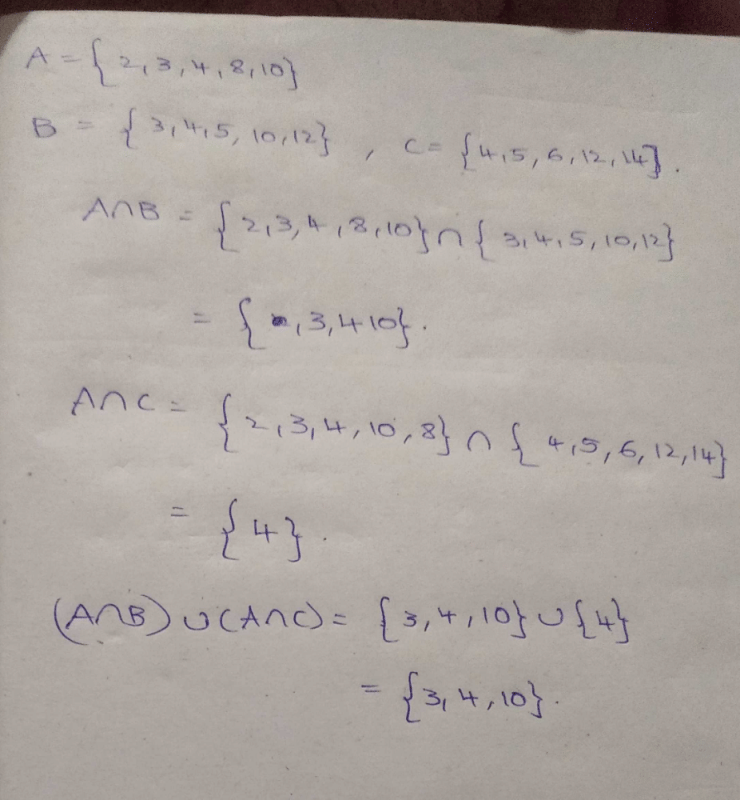 A = {2,3,4,8,10}
B = {3,4,5,10,12} , C = {4,5,6,12,14}.
A∩B = {2,3,4,8,10} ∩ {3,4,5,10,12}
= { ,3,4 10}.
A∩C = {2,3,4,10,8} ∩ {4,5,6,12,14}
= {4}.
(A∩B) ∪ (A∩C) = {3,4,10} ∪ {4}
= {3,4,10}.